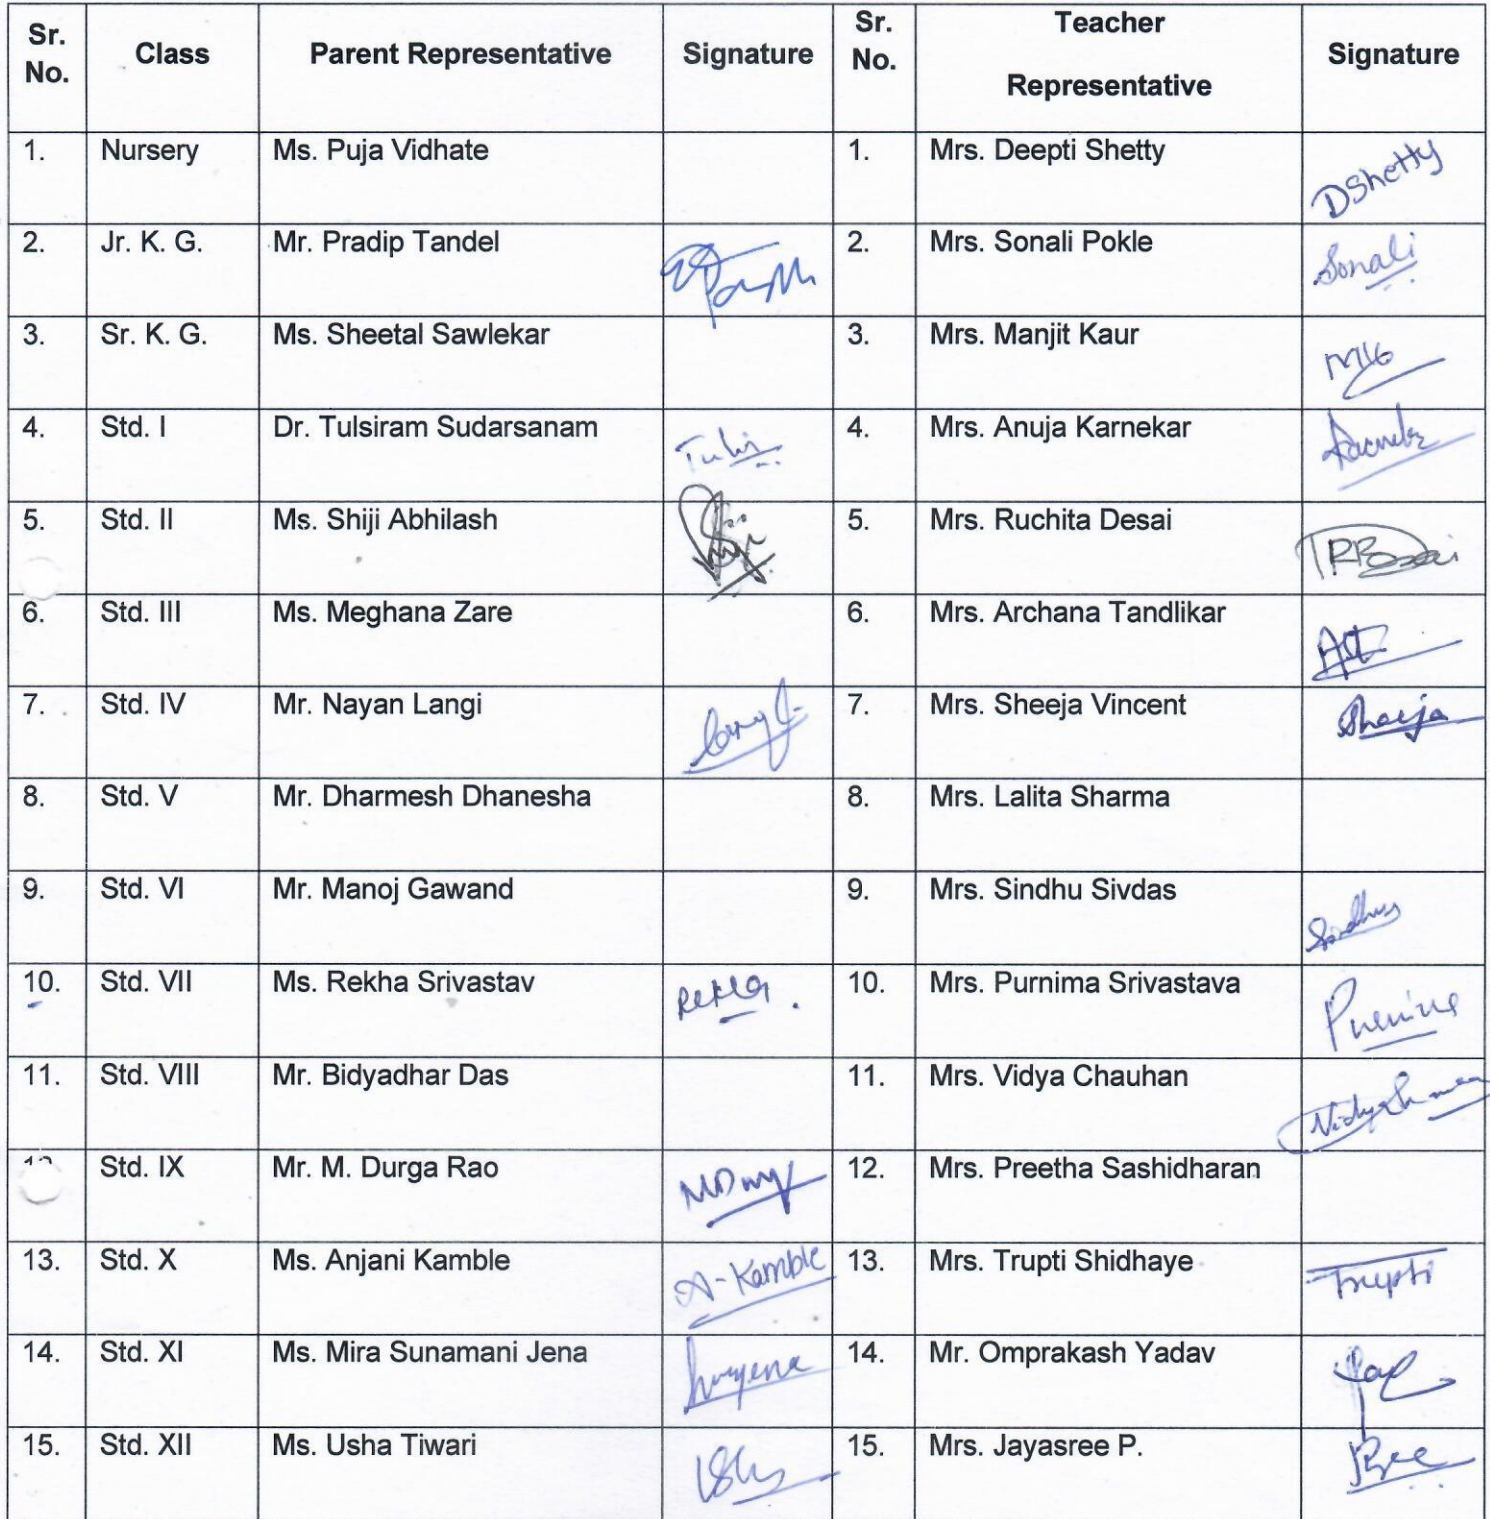 Sr. No. Class Parent Representative Signature Sr. No. Teacher Representative Signature
1. Nursery Ms. Puja Vidhate 1. Mrs. Deepti Shetty DShetty
2. Jr. K. G. Mr. Pradip Tandel 2. Mrs. Sonali Pokle Sonali
3. Sr. K. G. Ms. Sheetal Sawlekar 3. Mrs. Manjit Kaur
4. Std. I Dr. Tulsiram Sudarsanam 4. Mrs. Anuja Karnekar
5. Std. II Ms. Shiji Abhilash Shiji 5. Mrs. Ruchita Desai
6. Std. III Ms. Meghana Zare 6. Mrs. Archana Tandlikar
7. Std. IV Mr. Nayan Langi 7. Mrs. Sheeja Vincent Sheeja
8. Std. V Mr. Dharmesh Dhanesha 8. Mrs. Lalita Sharma
9. Std. VI Mr. Manoj Gawand 9. Mrs. Sindhu Sivdas
10. Std. VII Ms. Rekha Srivastav 10. Mrs. Purnima Srivastava
11. Std. VIII Mr. Bidyadhar Das 11. Mrs. Vidya Chauhan
Std. IX Mr. M. Durga Rao 12. Mrs. Preetha Sashidharan
13. Std. X Ms. Anjani Kamble A-Kamble 13. Mrs. Trupti Shidhaye Trupti
14. Std. XI Ms. Mira Sunamani Jena 14. Mr. Omprakash Yadav
15. Std. XII Ms. Usha Tiwari 15. Mrs. Jayasree P.